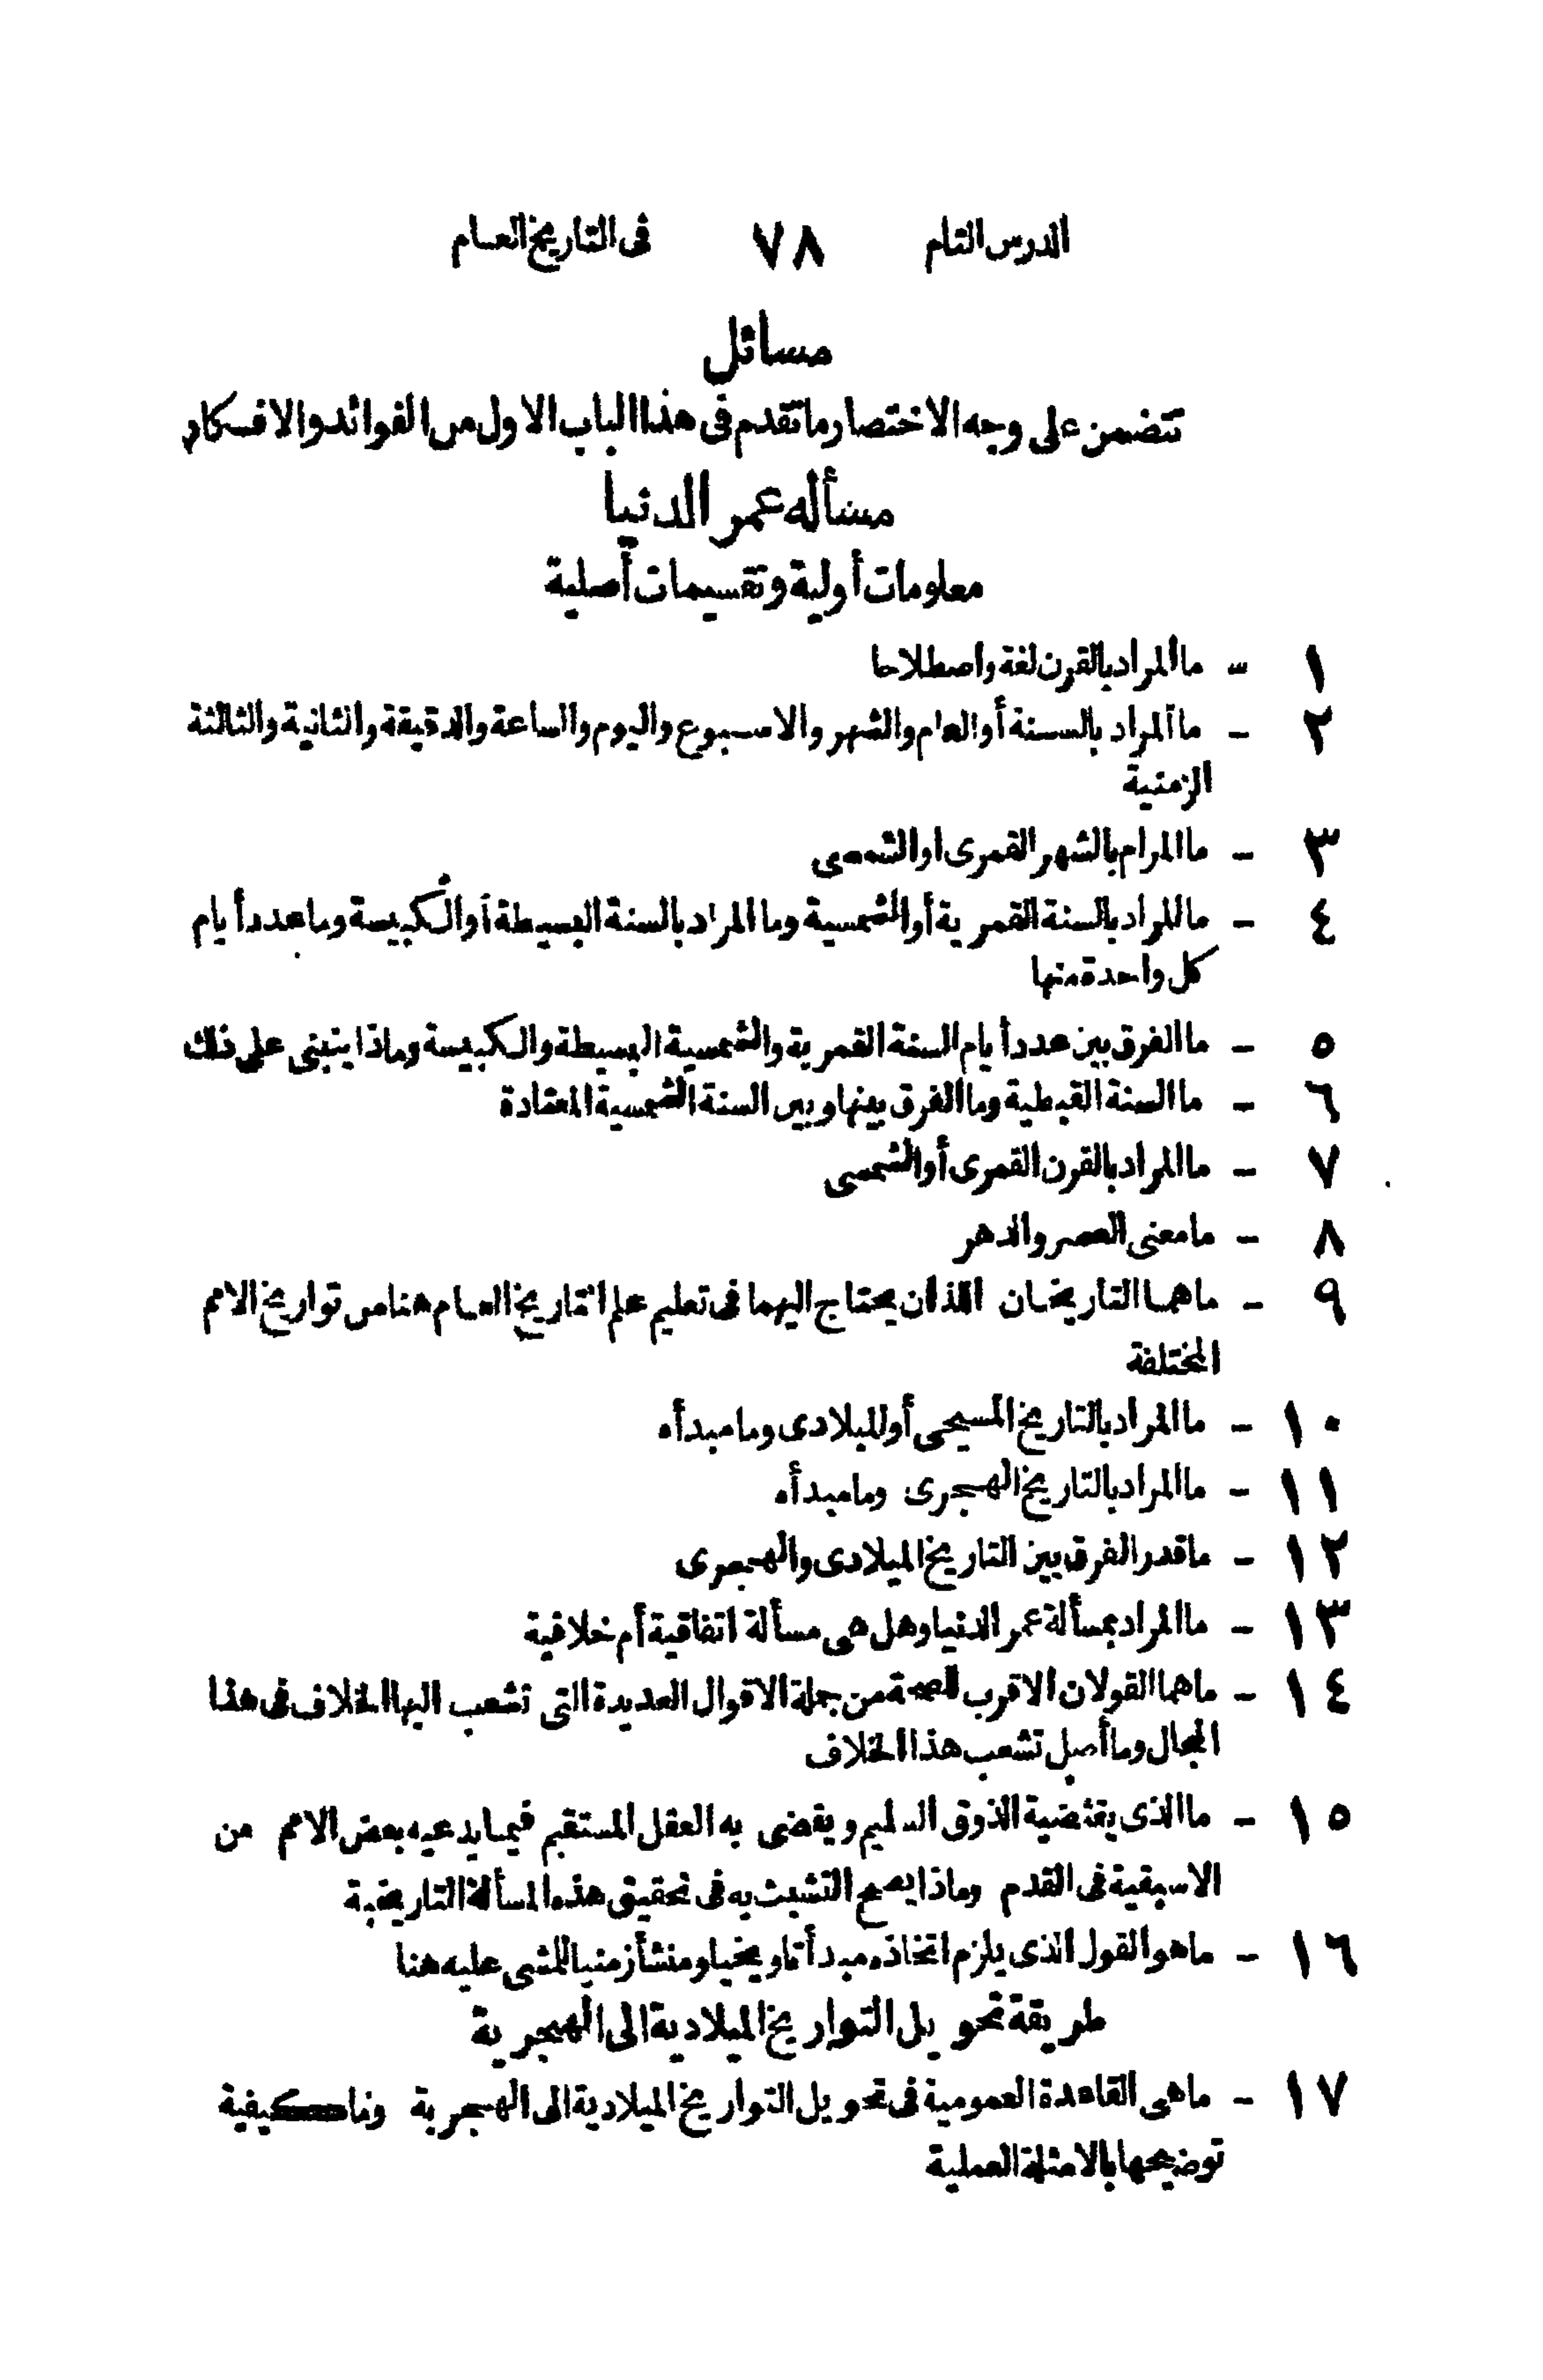 الدرس التام ٧٨ فى التاريخ العام
مسائل
تتضمن على وجه الاختصار ما تقدم فى هذا الباب الاول من الفوائد والافكار
مسأله عمر الدنيا
معلومات أولية وتقسيمات أصلية
١ - ما المراد بالقرن لغة واصطلاحا
٢ - ما المراد بالسنة أو العام والشهر والاسبوع واليوم والساعة والدقيقة والثانية والثالثة
الزمنية
٣ - ما المرام بالشهر القمرى او الشمسى
٤ - ما المراد بالسنة القمرية أو الشمسية وما المراد بالسنة البسيطة أو الكبيسة وما عدد أيام
كل واحدة منها
٥ - ما الفرق بين عدد أيام السنة القمرية والشمسية البسيطة والكبيسة وماذا ينبنى على ذلك
٦ - ما السنة القبطية وما الفرق بينها وبين السنة الشمسية المعتادة
٧ - ما المراد بالقرن القمرى أو الشمسى
٨ - ما معنى العصر والدهر
٩ - ما هما التاريخان اللذان يحتاج اليهما فى تعليم علم التاريخ العام هنا من تواريخ الامم
المختلفة
١٠ - ما المراد بالتاريخ المسيحى أو الميلادى وما مبدأه
١١ - ما المراد بالتاريخ الهجرى وما مبدأه
١٢ - ما قدر الفرق بين التاريخ الميلادى والهجرى
١٣ - ما المراد بمسألة عمر الدنيا وهل هى مسألة اتفاقية أم خلافية
١٤ - ما هما القولان الاقرب للصحة من جملة الاقوال العديدة التى تشعب اليها الخلاف فى هذا
المجال وما أصل تشعب هذا الخلاف
١٥ - ما الذى يقتضية الذوق السليم ويقضى به العقل المستقيم فيما يدعيه بعض الامم من
الاسبقية فى القدم وماذا يصح التشبث به فى تحقيق هذه المسألة التاريخية
١٦ - ما هو القول الذى يلزم اتخاذه مبدأ تاريخيا ومنشأ زمنيا للمشى عليه هنا
طريقة تحويل التواريخ الميلادية الى الهجرية
١٧ - ما هى القاعدة العمومية فى تحويل التواريخ الميلادية الى الهجرية وما كيفية
توضيحها بالامثلة العملية